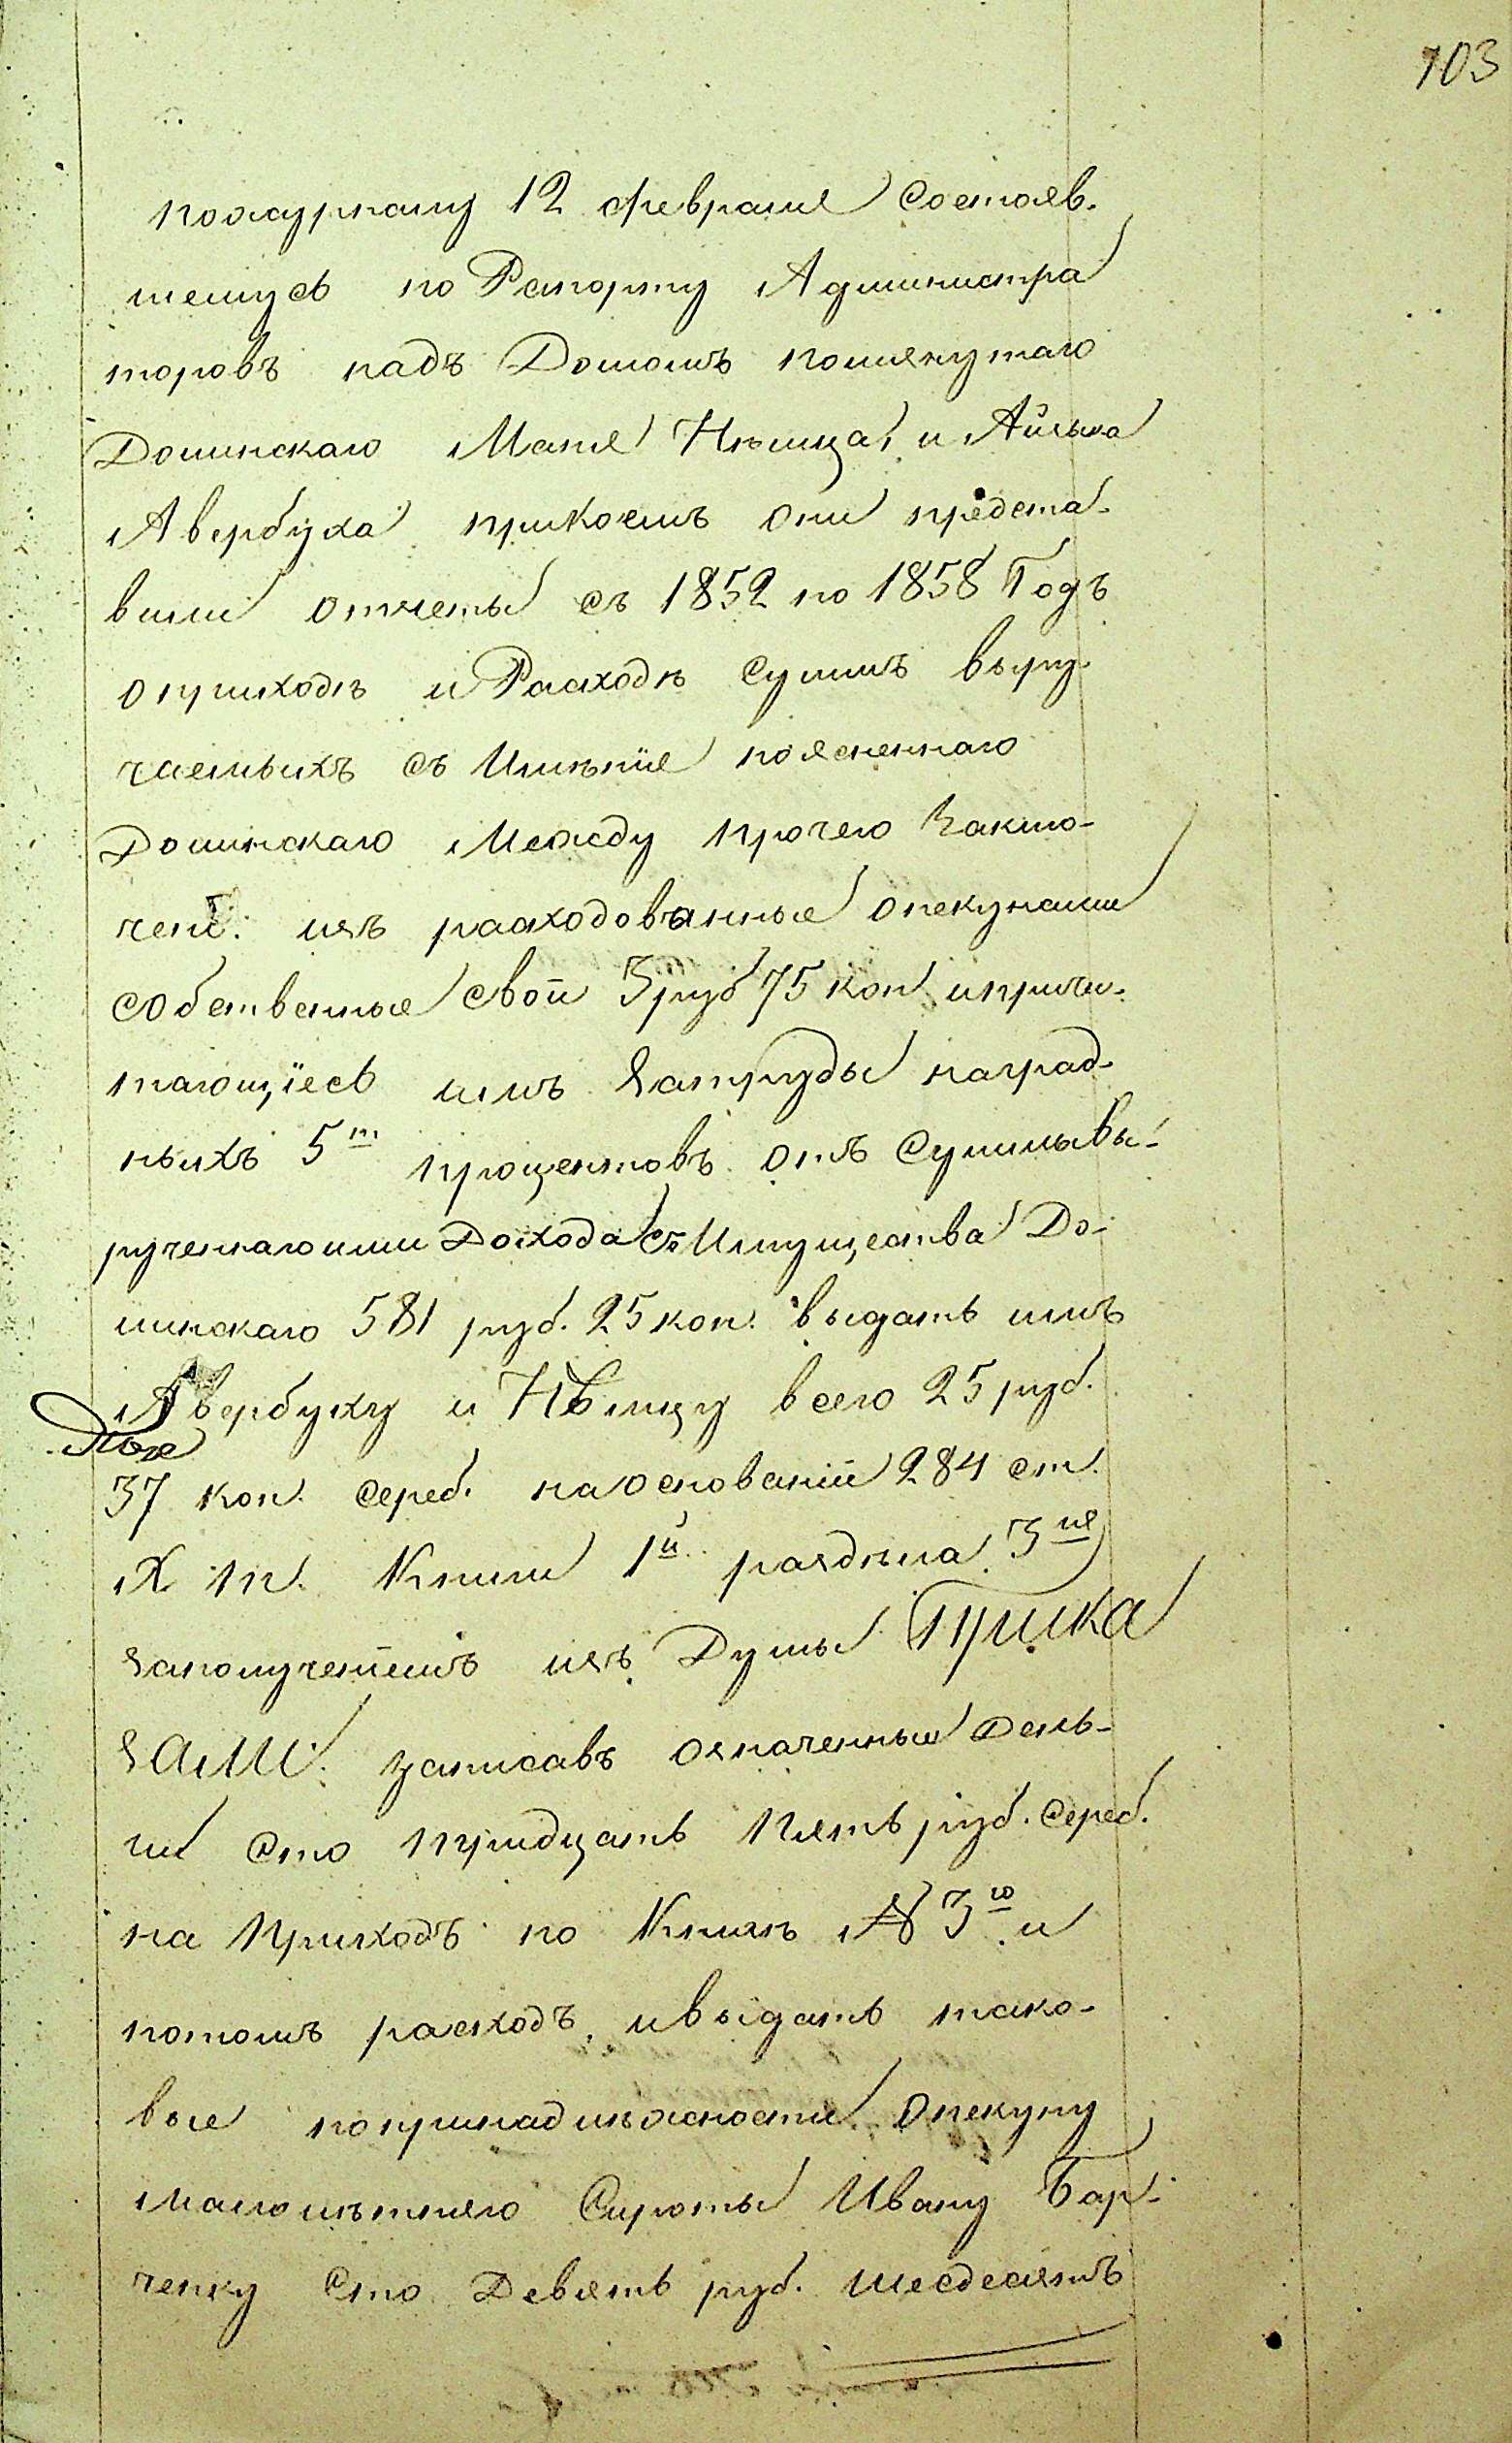 103
пожурналу 12 февраля состояв-
шемусь по Рапорту Администра
торовъ надъ Домомъ помянутаго
Долинскаго Маня Нѣмца, и Айзыка
Авербуха прикоемъ они предста-
вили отчеты съ 1852 по 1858 Годъ
оприходѣ и Расходѣ суммъ выру-
чаемыхъ съ Имѣнïя поясненнаго
Долинскаго Между прочего Заклю-
чено: изъ расходованные опекунами
собственные свои 3 руб 75 коп. ипричи-
тающïесь имъ Затруды наград-
ныхъ 5ть процентовъ отъ Суммы вы-
рученнаго ими Дохода съ Имущества До-
линскаго 581 руб. 25 коп. выдать имъ
Авербуху и Нѣмцу всего 25 руб.
37 коп. сереб. на основанïи 284 ст.
X т. Книги 1й раздѣла 3ия
Заполученïемъ изъ Думы
записавъ означенные день-
ги Сто тридцать Пять руб. Сереб.
на Приходъ по Книгѣ № 3ю и
потомъ расходъ, ивыдать тако-
вые попринадлежности Опекуну
малолѣтняго Сироты Ивану Бар-
ченку Сто Девять руб. шесдесятъ